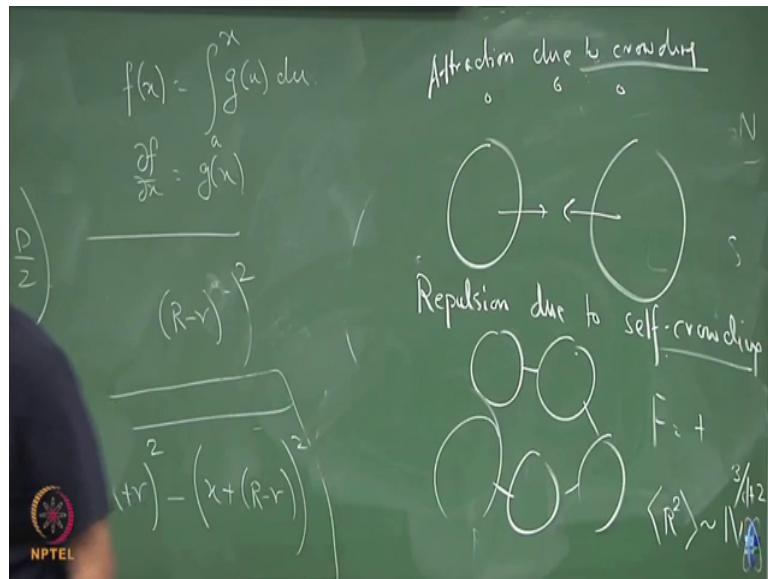 f(x) = ∫ₐˣ g(u) du.
∂f/∂x = g(x)
D/2 )
(R-r))²
+r)² - (x+(R-r))²
Attraction due to crowding
N
S
Repulsion due to self-crowding
F = +
⟨R²⟩ ~ N^3/d+2
NPTEL